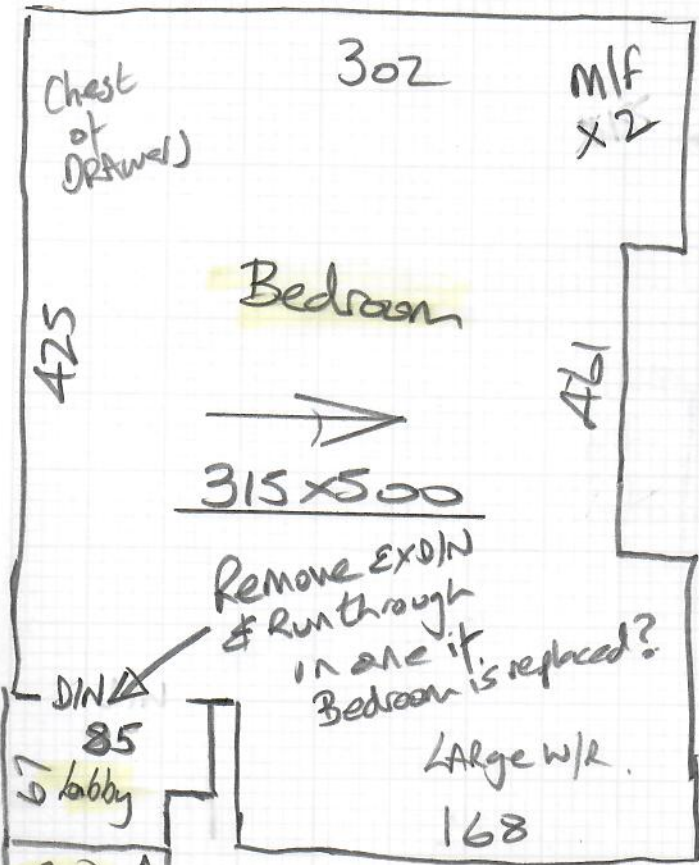 302
Chest
of
DRAwer)
m/f
x2
Bedroom
425
461
315x500
Remove EXDIN
& Run through
in one if
Bedroom is replaced?
DIN
85
67
lobby
LARge W/R.
168